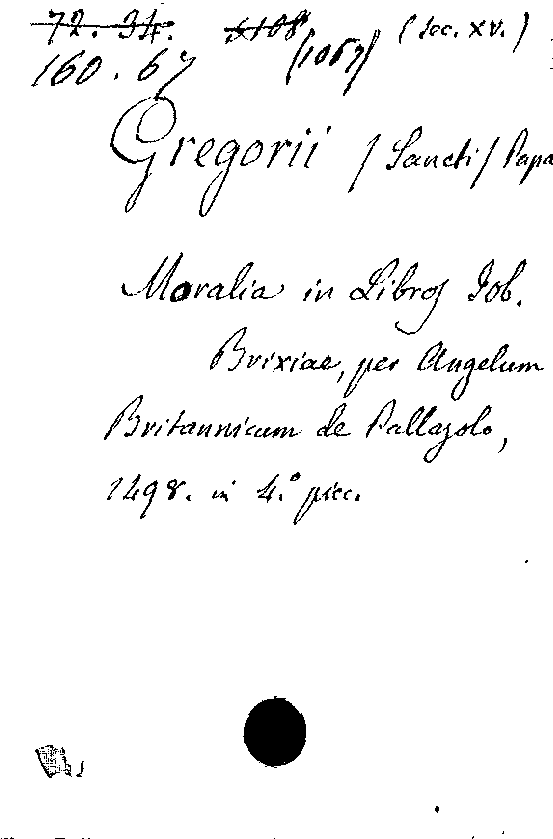 72. 34. 5108 (Sec. XV.)
160. 67 (1067)
Gregorii /Sancti/ Papa
Moralia in Libros Iob.
Brixiae, per Angelum
Britannicum de Pallazolo,
1498. in 4.° picc.